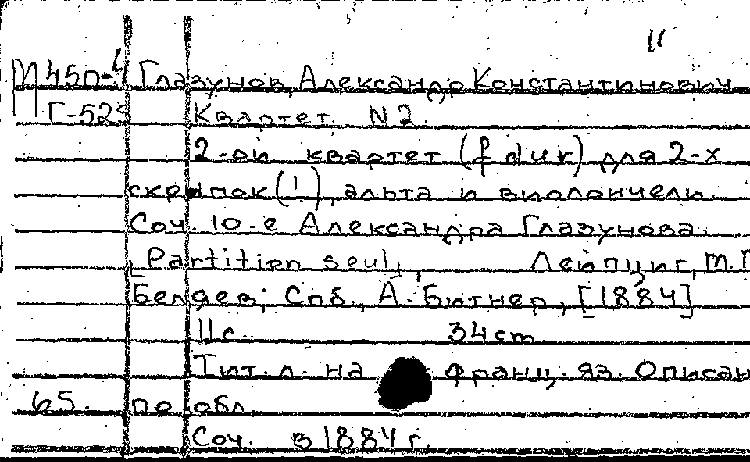 11
М 45п-4 Глазунов, Александр Константинович
Г-525 Квартет N 2.
2-ой квартет (f dur) для 2-х
скрыпок (!), альта и виолончели.
Соч. 10-е Александра Глазунова.
Partition seul, Лейпциг, М.П.
Беляев; Спб., А. Битнер, [1884]
11 с. 34 cm
Тит. л. на франц. яз. Описан
65. по обл.
Соч. в 1884 г.